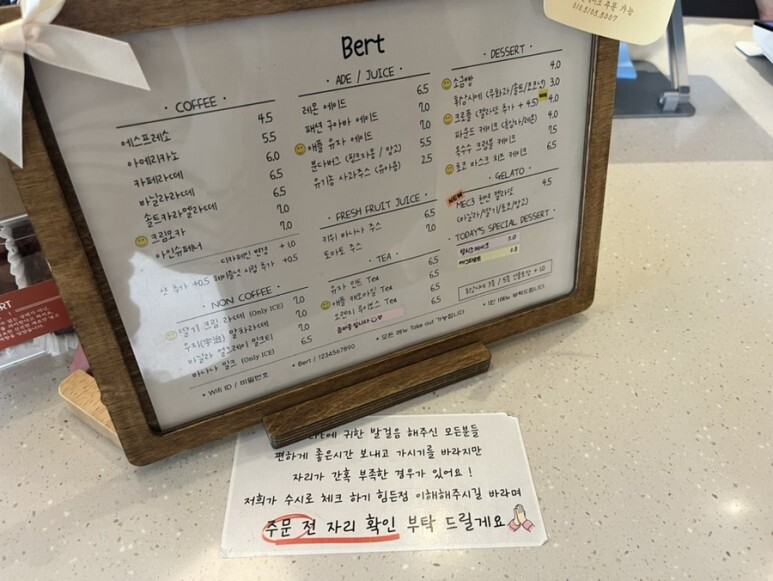 주문 가능
010.5105.3007
Bert
· COFFEE ·
에스프레소 4.5
아메리카노 5.5
카페라떼 6.0
바닐라라떼 6.5
솔트카라멜라떼 6.5
크림모카 7.0
아인슈페너 7.0
디카페인 변경 + 1.0
샷 추가 +0.5 +0.5
· NON COFFEE ·
딸기 크림 라떼 (Only ICE) 7.0
우지(宇治) 말차라떼 7.0
바닐라 얼그레이 밀크티 7.0
바나나 밀크 (Only ICE) 6.5
· ADE / JUICE ·
레몬 에이드 6.5
패션 구아바 에이드 7.0
애플 유자 에이드 7.0
5.5
유기농 사과주스 (유아용) 2.5
· FRESH FRUIT JUICE ·
키위 바나나 주스 6.5
토마토 주스 7.0
· TEA ·
유자 민트 Tea 6.5
애플 캐모마일 Tea 6.5
오렌지 루이보스 Tea 6.5
· DESSERT ·
소금빵 4.0
휘낭시에 3.0
크로플 (젤라또 추가 + 4.5) 4.0
파운드 케이크 4.0
옥수수 크림볼 케이크 7.5
초코 바스크 치즈 케이크 6.5
· GELATO ·
NEW
MEC3 천연 젤라또 4.5
(바닐라/딸기/초코/망고)
· TODAY'S SPECIAL DESSERT ·
* Wifi ID / 비밀번호
* Bert / 1234567890
* 모든 메뉴 Take out 가능합니다.
* 1인 1메뉴 부탁드립니다.
귀한 발걸음 해주신 모든분들
편하게 좋은시간 보내고 가시기를 바라지만
자리가 간혹 부족한 경우가 있어요 !
저희가 수시로 체크 하기 힘든점 이해해주시길 바라며
주문 전 자리 확인 부탁 드릴게요